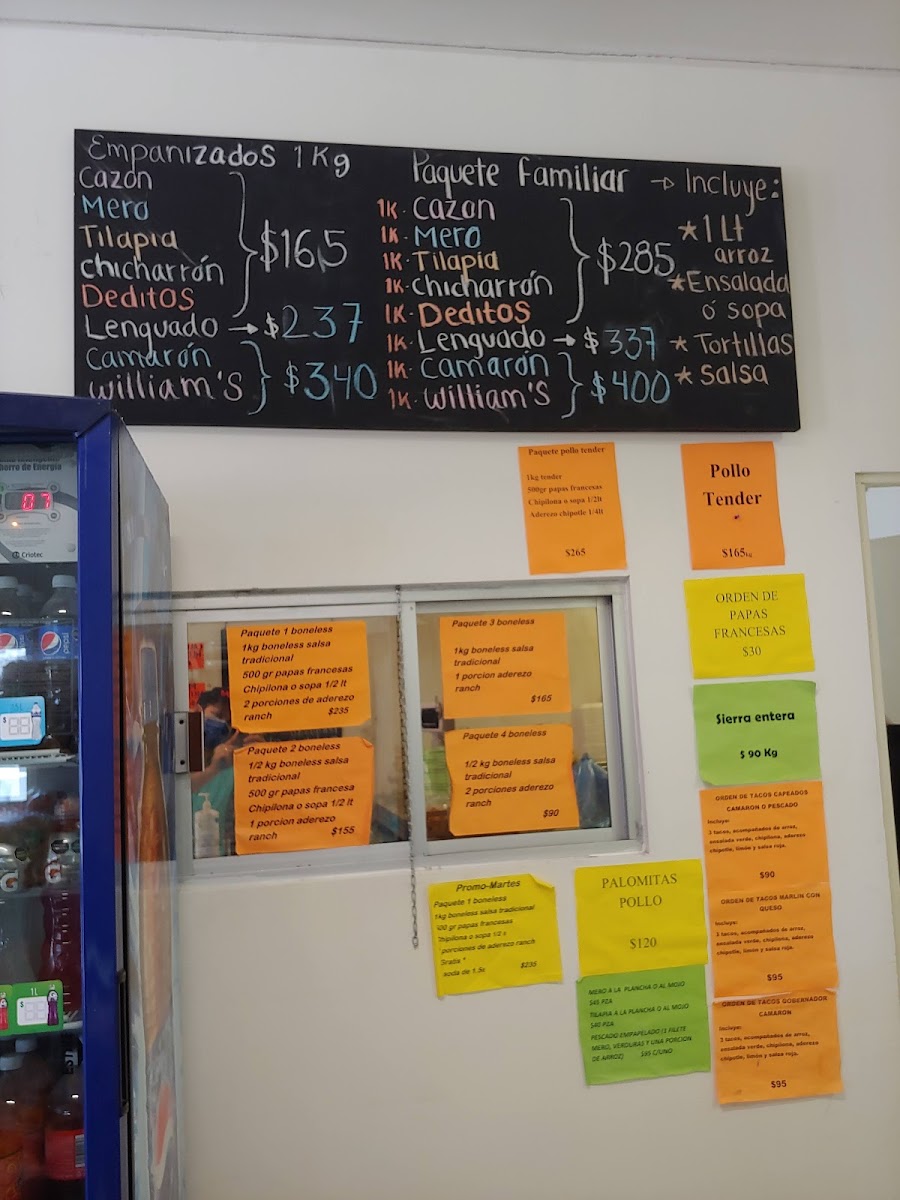 Empanizados 1 Kg
Cazón
Mero
Tilapia
chicharrón
Deditos
$165
Lenguado → $237
Camarón
William's
$340
Paquete Familiar → Incluye:
1K. Cazon
1K. Mero
1K. Tilapia
1K. Chicharrón
1K. Deditos
$285
1K. Lenguado → $337
1K. Camarón
1K. William's
$400
* 1 Lt
arroz
* Ensalada
ó sopa
* Tortillas
* Salsa
Paquete pollo tender
1kg tender
500gr papas francesas
Chipilona o sopa 1/2lt
Aderezo chipotle 1/4lt
$265
Pollo
Tender
$165kg
ORDEN DE
PAPAS
FRANCESAS
$30
Sierra entera
$ 90 Kg
Paquete 1 boneless
1kg boneless salsa
tradicional
500 gr papas francesas
Chipilona o sopa 1/2 lt
2 porciones de aderezo
ranch $235
Paquete 2 boneless
1/2 kg boneless salsa
tradicional
500 gr papas francesa
Chipilona o sopa 1/2 lt
1 porcion aderezo
ranch $155
Paquete 3 boneless
1kg boneless salsa
tradicional
1 porcion aderezo
ranch
$165
Paquete 4 boneless
1/2 kg boneless salsa
tradicional
2 porciones aderezo
ranch
$90
ORDEN DE TACOS CAPEADOS
CAMARON O PESCADO
Incluye:
3 tacos, acompañados de arroz,
ensalada verde, chipilona, aderezo
chipotle, limón y salsa roja.
$90
ORDEN DE TACOS MARLIN CON
QUESO
Incluye:
3 tacos, acompañados de arroz,
ensalada verde, chipilona, aderezo
chipotle, limón y salsa roja.
$95
ORDEN DE TACOS GOBERNADOR
CAMARON
Incluye:
3 tacos, acompañados de arroz,
ensalada verde, chipilona, aderezo
chipotle, limón y salsa roja.
$95
Promo-Martes
Paquete 1 boneless
1kg boneless salsa tradicional
500 gr papas francesas
Chipilona o sopa 1/2 l
porciones de aderezo ranch
Gratis *
soda de 1.5 $235
PALOMITAS
POLLO
$120
MERO A LA PLANCHA O AL MOJO
$45 PZA
TILAPIA A LA PLANCHA O AL MOJO
$40 PZA
PESCADO EMPAPELADO (1 FILETE
MERO, VERDURAS Y UNA PORCION
DE ARROZ) $95 C/UNO
horro de Energía
07
Criotec
pepsi
G
1L
$